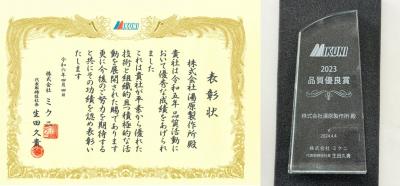 MIKUNI
表彰状
株式会社湯原製作所殿
貴社は令和五年品質活動に
おいて優秀な成績をあげられ
ました
これは貴社が平素から優れた
技術と組織的且つ積極的な活
動を展開された賜であります
更に今後のご努力を期待する
と共にその功績を認め表彰い
たします
令和六年四月四日
株式会社ミクニ
代表取締役社長 生田久貴
MIKUNI
2023
品質優良賞
株式会社湯原製作所 殿
2024.4.4
株式会社 ミクニ
代表取締役社長 生田久貴